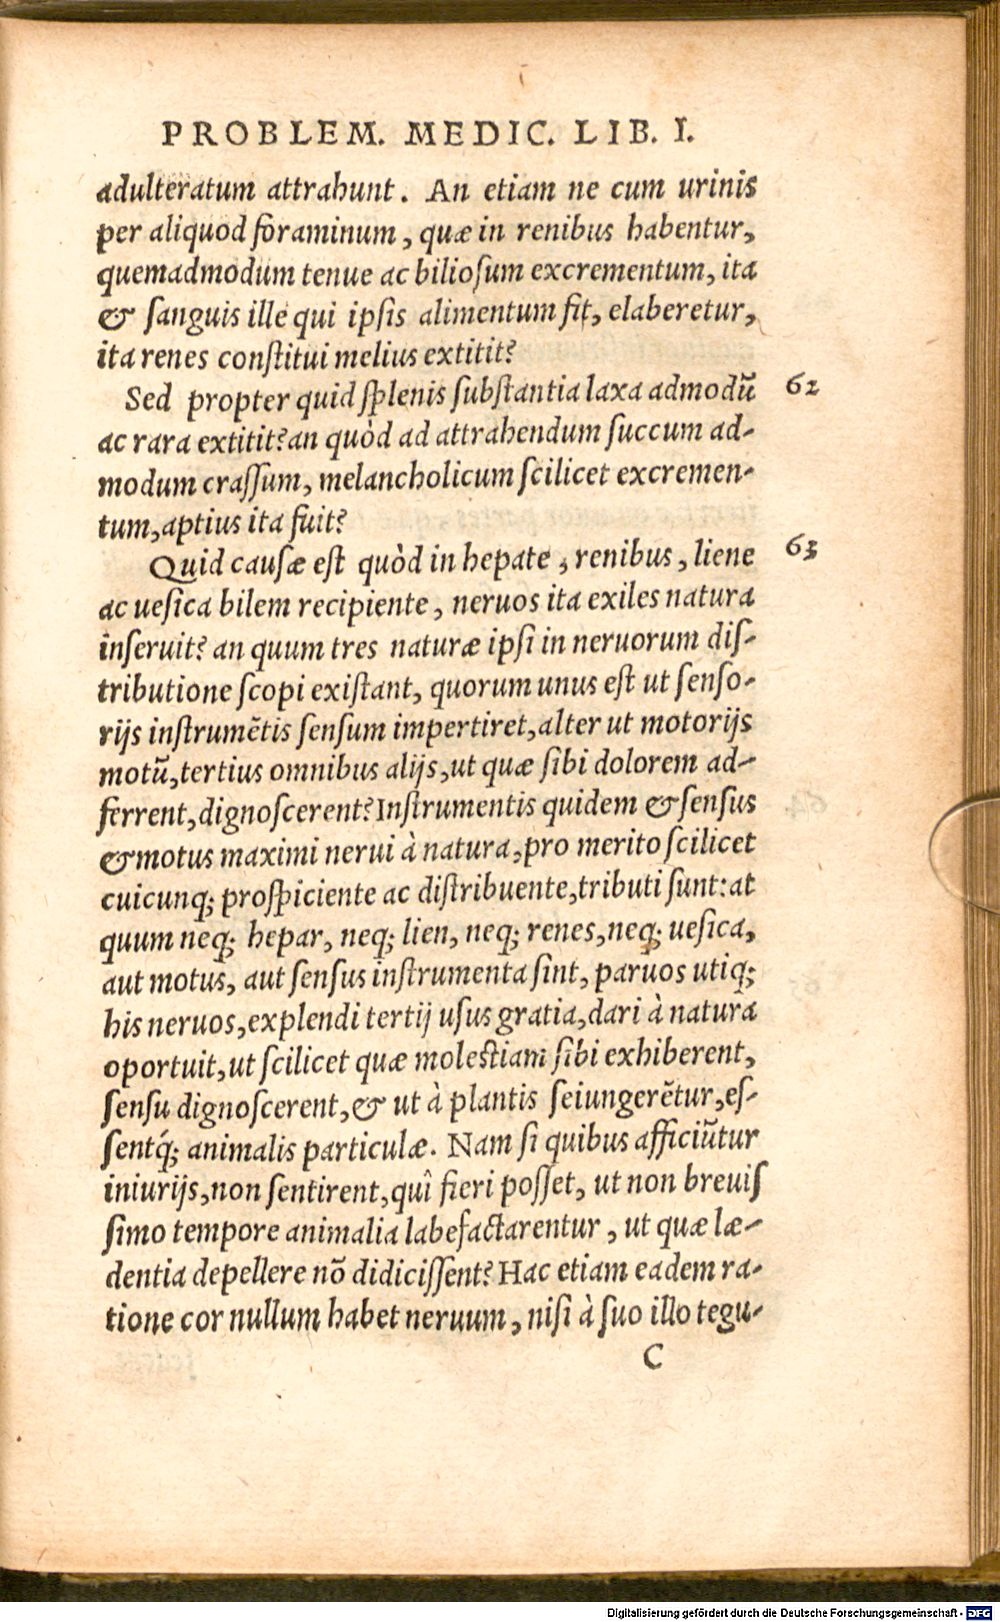 PROBLEM. MEDIC. LIB. I.
adulteratum attrahunt. An etiam ne cum urinis
per aliquod foraminum, quæ in renibus habentur,
quemadmodum tenue ac biliosum excrementum, ita
& sanguis ille qui ipsis alimentum fit, elaberetur,
ita renes constitui melius extitit?
Sed propter quid splenis substantia laxa admodũ 62
ac rara extitit? an quòd ad attrahendum succum ad-
modum crassum, melancholicum scilicet excremen-
tum, aptius ita fuit?
Quid causæ est quòd in hepate, renibus, liene 63
ac uesica bilem recipiente, neruos ita exiles natura
inseruit? an quum tres naturæ ipsi in neruorum dis-
tributione scopi existant, quorum unus est ut senso-
rijs instrumẽtis sensum impertiret, alter ut motorijs
motũ, tertius omnibus alijs, ut quæ sibi dolorem ad-
ferrent, dignoscerent? Instrumentis quidem & sensus
& motus maximi nerui à natura, pro merito scilicet
cuicunq; prospiciente ac distribuente, tributi sunt: at
quum neq; hepar, neq; lien, neq; renes, neq; uesica,
aut motus, aut sensus instrumenta sint, paruos utiq;
his neruos, explendi tertij usus gratia, dari à natura
oportuit, ut scilicet quæ molestiam sibi exhiberent,
sensu dignoscerent, & ut à plantis seiungerẽtur, es-
sentq́; animalis particulæ. Nam si quibus afficiũtur
iniurijs, non sentirent, quî fieri posset, ut non breuis
simo tempore animalia labefactarentur, ut quæ læ-
dentia depellere nõ didicissent? Hac etiam eadem ra-
tione cor nullum habet neruum, nisi à suo illo tegu-
C
Digitalisierung gefördert durch die Deutsche Forschungsgemeinschaft - DFG